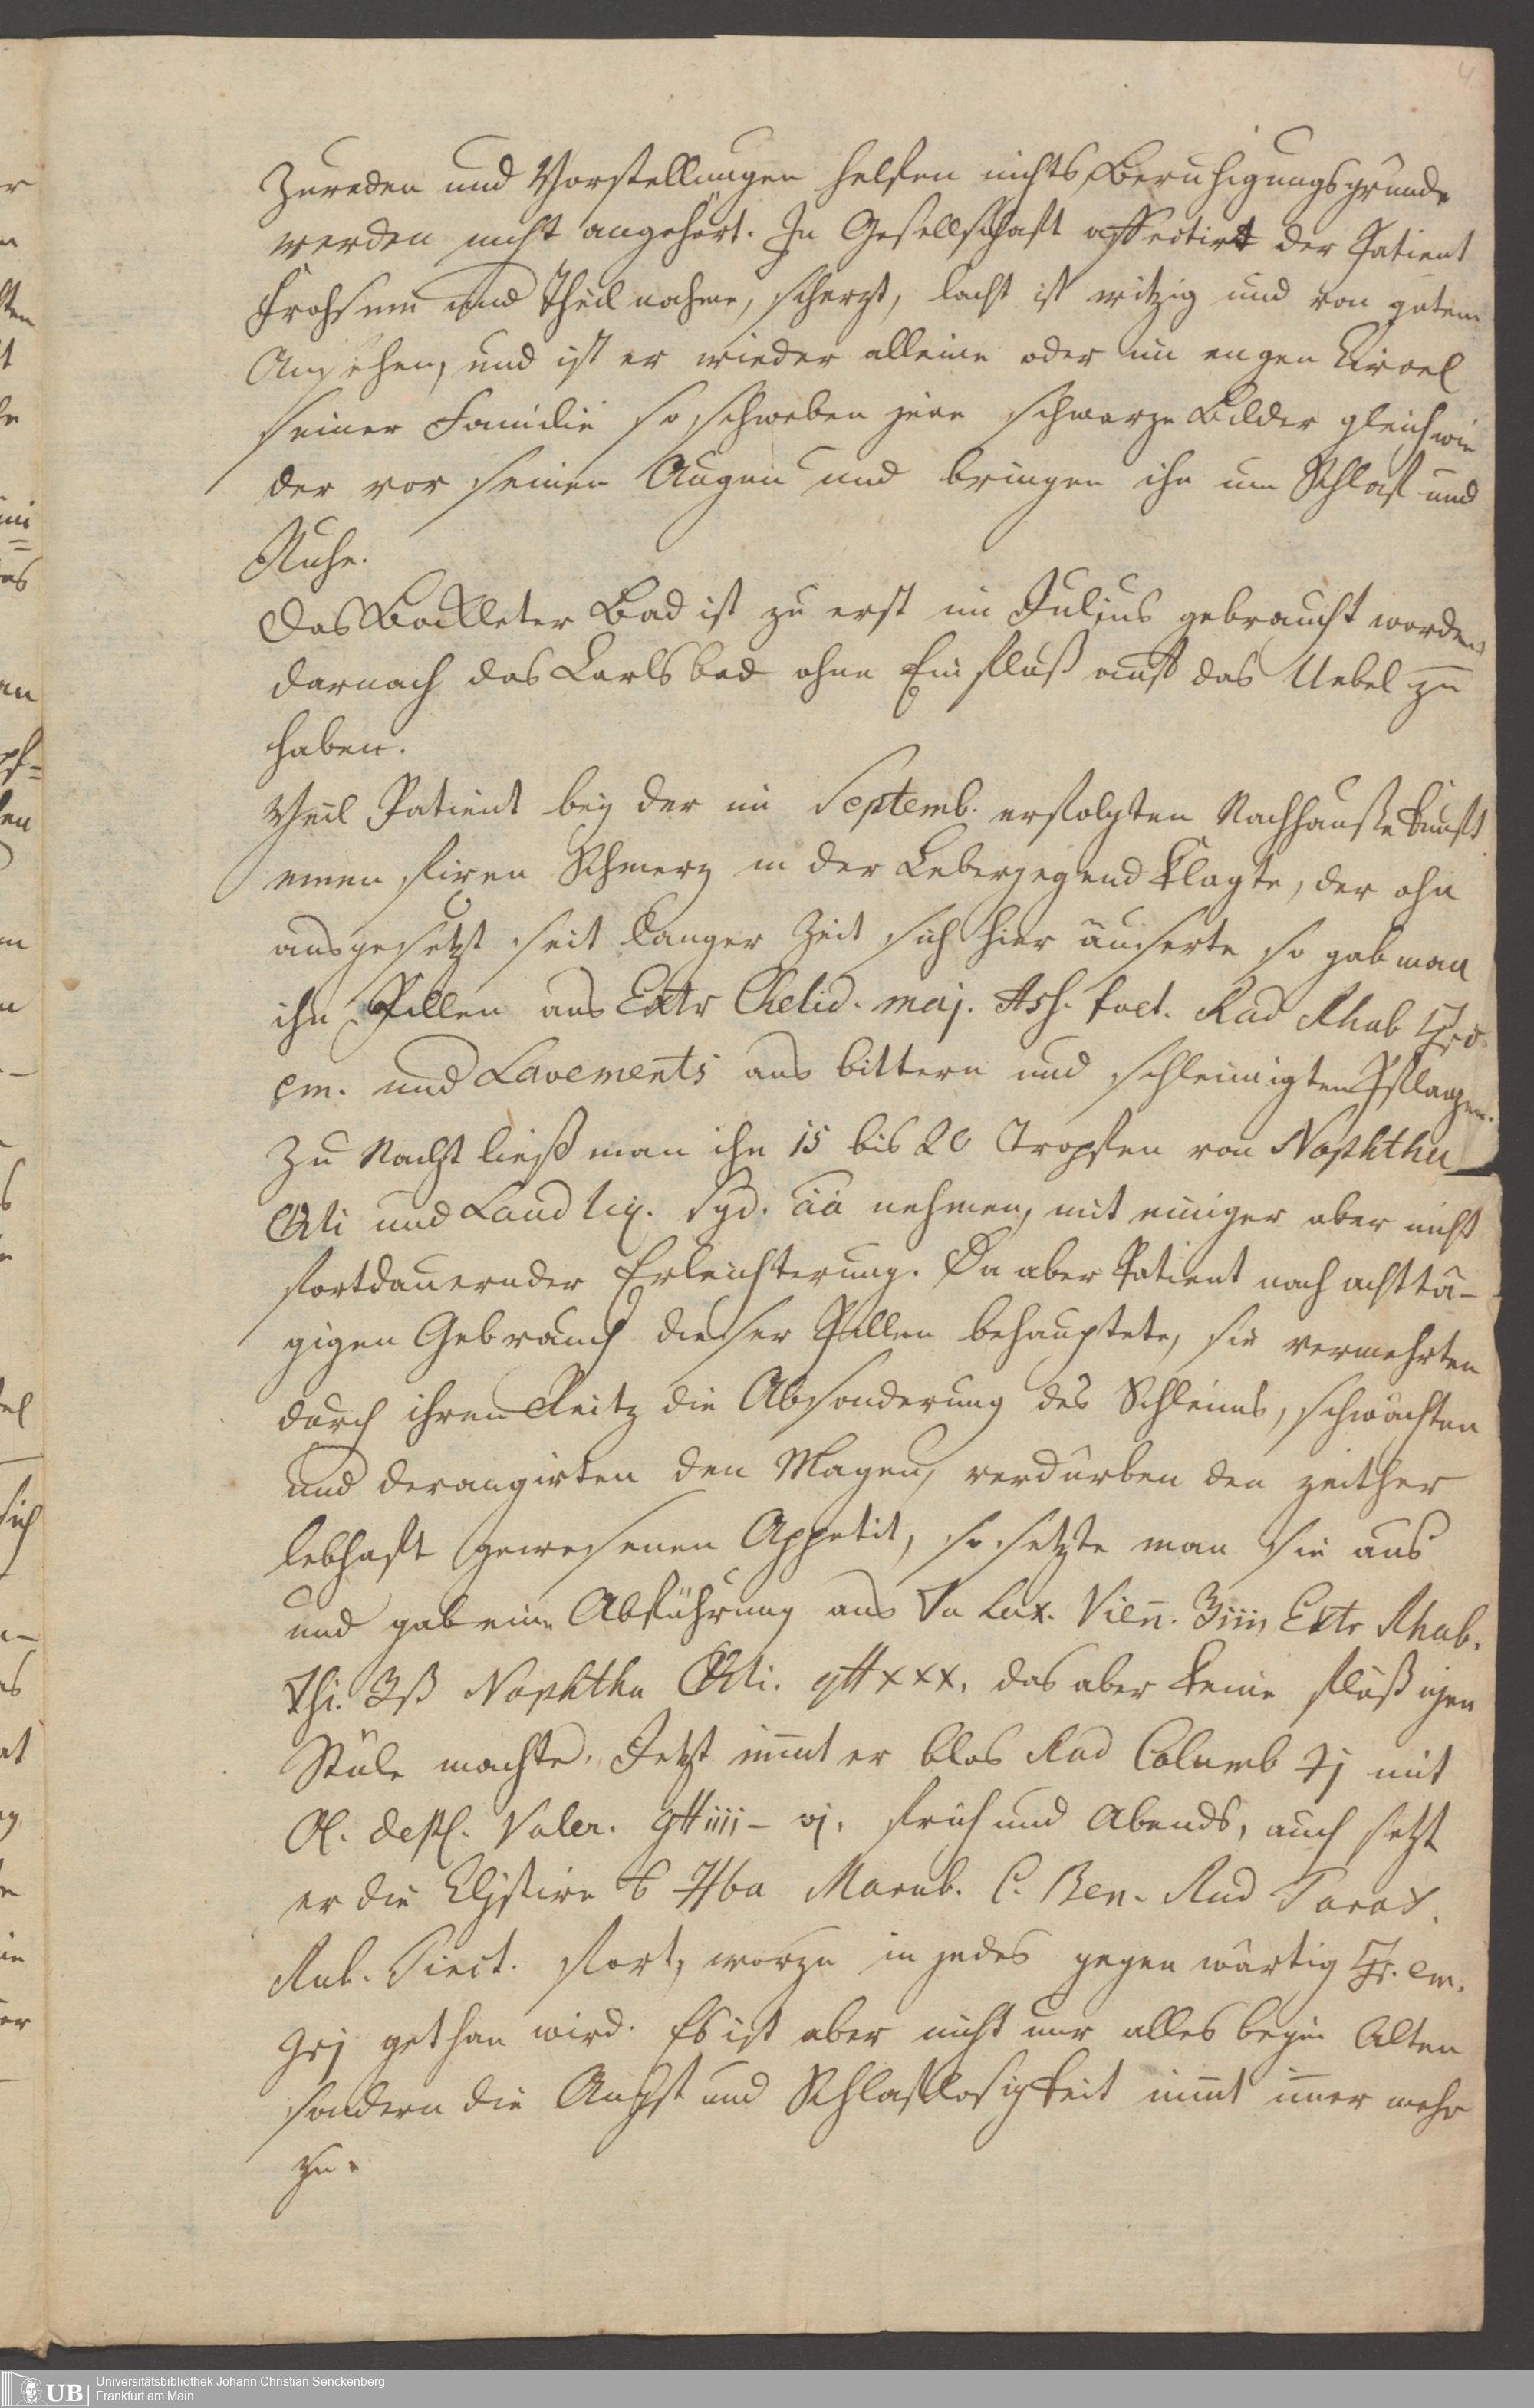 4
Zureden und Vorstellungen helfen nichts, Beruhigungsgründe
werden nicht angehört. In Gesellschaft affectirt der Patient
Frohsinn und Theilnahme, scherzt, lacht ist witzig und von gutem
Ansehen, und ist er wieder alleine oder im engen Circel
seiner Familie so schweben jene schwarze Bilder gleich wie
der vor seinen Augen und bringen ihn um Schlaf und
Ruhe.
Das Bockleter Bad ist zu erst im Julius gebraucht worden,
darnach das Carlsbad ohne Einfluß auf das Uebel zu
haben.
Weil Patient bey der im Septemb. erfolgten Nachhausekunft
einen fixen Schmerz in der Lebergegend klagte, der ohn
ausgesetzt seit langer Zeit sich hier äuserte so gab man
ihn Pillen aus Extr Chelid. maj. As f. foet. Rad Rhab
em. und Lavements aus bittern und schleimigten Pflanzen.
Zu Nacht ließ man ihn 15 bis 20 Tropfen von Naphtha
und Laud liq. Syd. aa nehmen, mit einiger aber nicht
fortdauernder Erleichterung. Da aber Patient nach achttä-
gigen Gebrauch dieser Pillen behauptete, sie vermehrten
durch ihren Reitz die Absonderung des Schleims, schwächten
und derangirten den Magen, verdürben den zeither
lebhaft gewesenen Appetit, so setzte man sie aus
und gab eine Abführung aus Lax. Vien̄. ʒiiij Extr Rhab.
ʒß Naphtha gtt xxx. das aber keine flüßigen
Stüle machte. Jetzt nim̄t er blos Rad Columb ℈j mit
Ol. dest. Valer. gtt iiii - vj. früh und Abends, auch setzt
er die Clystire Hba Marub. C. Ben. Rad Tarax.
Rub. Tinct. fort, worzu in jedes gegenwärtig em.
grj gethan wird. Es ist aber nicht nur alles beym Alten
sondern die Angst und Schlaflosigkeit nim̄t im̄er mehr
zu.
UB
Universitätsbibliothek Johann Christian Senckenberg
Frankfurt am Main